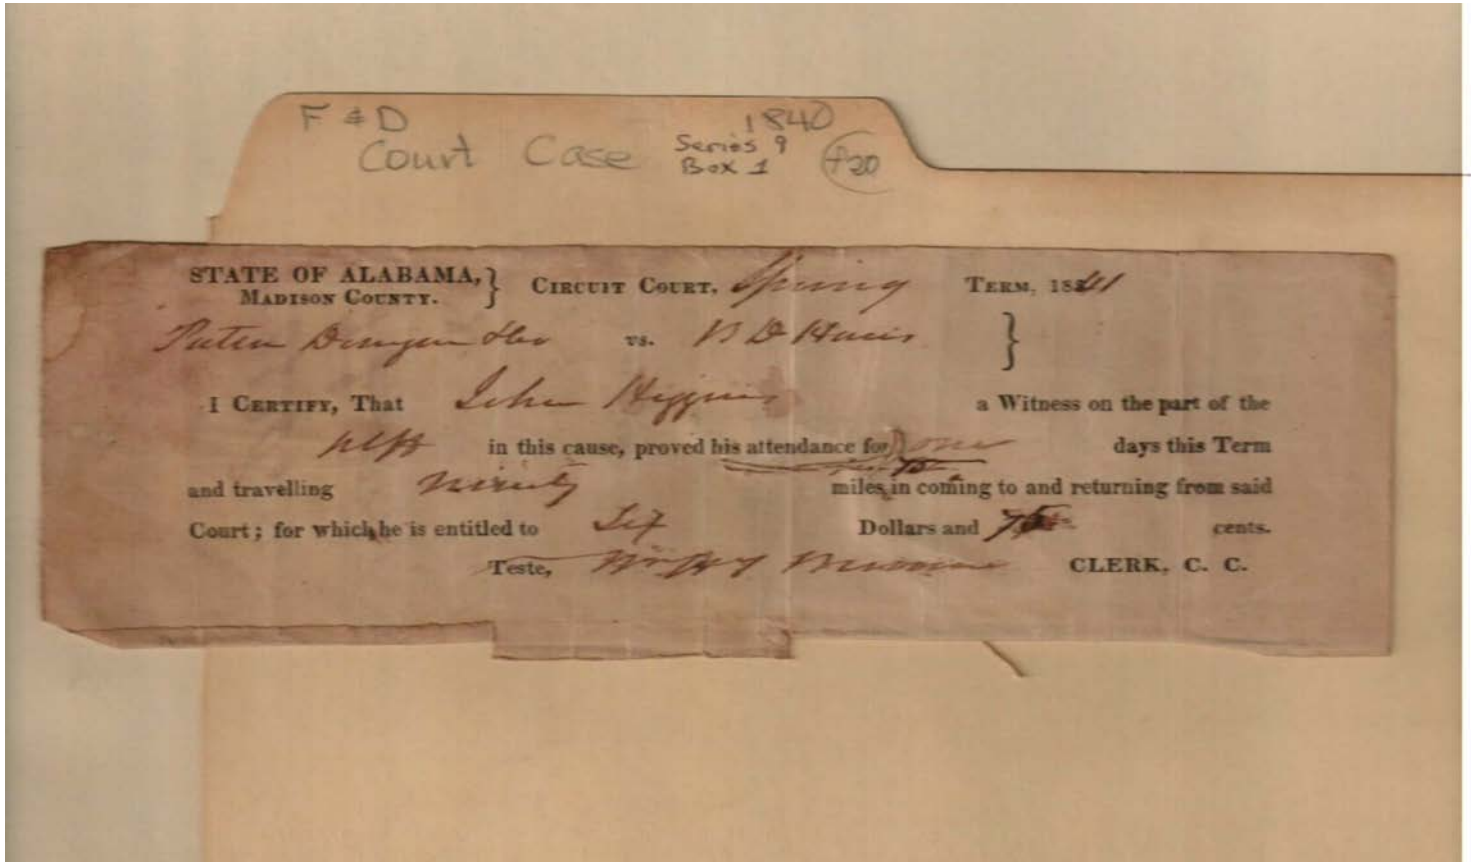 F & D 1840
Court Case Series 9
Box 1 f20
STATE OF ALABAMA, } CIRCUIT COURT, Spring TERM, 1841
MADISON COUNTY.
vs. B D Harris }
I CERTIFY, That John Higgins a Witness on the part of the
plff in this cause, proved his attendance for one days this Term
and travelling ninety miles in coming to and returning from said
Court; for which he is entitled to Six Dollars and cents.
Teste, CLERK, C. C.